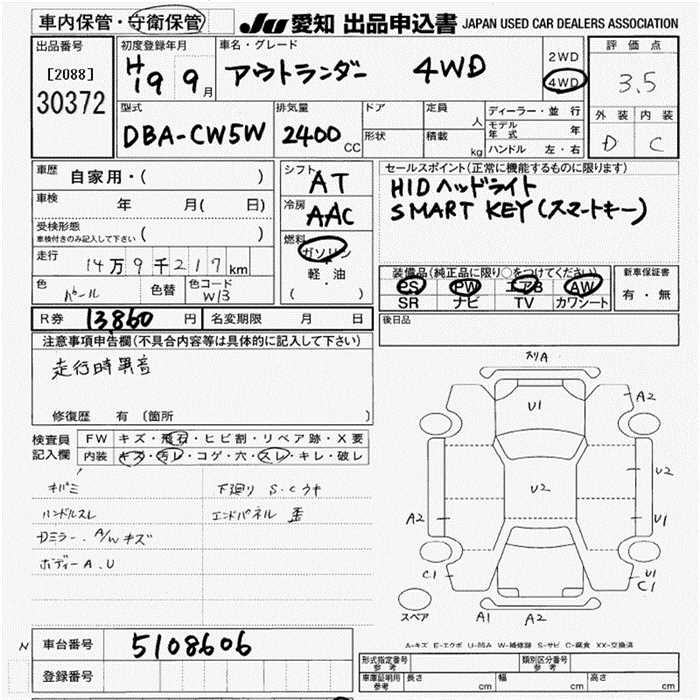 車内保管・守衛保管 JU 愛知 出品申込書 JAPAN USED CAR DEALERS ASSOCIATION
出品番号 [2088] 30372
初度登録年月 H19 9月
車名・グレード アウトランダー 4WD
2WD 4WD
評価点 3.5
外装 内装
D C
型式 DBA-CW5W
排気量 2400 CC
ドア 形状
定員 人 積載 kg
ディーラー・並行
モデル年式 年
ハンドル 左・右
車歴 自家用・( )
車検 年 月( 日)
受検形態 車検付きのみ記入して下さい ( )
走行 14万9千217km
色 パール 色替 色コード W13
シフト AT
冷房 AAC
燃料 ガソリン・軽油 ( )
セールスポイント(正常に機能するものに限ります)
HIDヘッドライト
SMART KEY(スマートキー)
装備品(純正品に限り○をつけてください)
PS PW エアB AW
SR ナビ TV カワシート
新車保証書 有・無
R券 13860円 名変期限 月 日
後日品
注意事項申告欄(不具合内容等は具体的に記入して下さい)
走行時異音
修復歴 有 〔箇所 〕
検査員記入欄
FW キズ・飛石・ヒビ割・リペア跡・X要
内装 キズ・汚レ・コゲ・穴・スレ・キレ・破レ
キバミ
ハンドルスレ
Dミラー、A/Wキズ
ボディーA、U
下廻り S・Cウキ
エンドパネル 歪
A
U1
A2
U2
U2
A2
U1
C1
U1
C1
スペア
A1
A2
A-キズ E-エクボ U-凹み W-補修跡 S-サビ C-腐食 XX-交換済
N 車台番号 5108606
登録番号
形式指定番号 参考 類別区分番号 参考
車庫証明用 参考 長さ cm 幅 cm 高さ cm